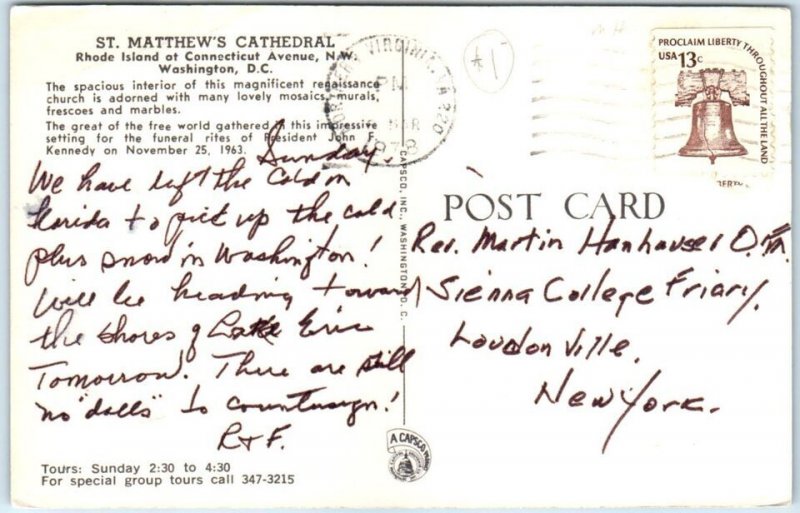 ST. MATTHEW'S CATHEDRAL
Rhode Island at Connecticut Avenue, N.W.
Washington, D.C.
The spacious interior of this magnificent renaissance
church is adorned with many lovely mosaics, murals,
frescoes and marbles.
The great of the free world gathered in this impressive
setting for the funeral rites of President John F.
Kennedy on November 25, 1963.
Sunday,
We have left the cold in
Florida to pick up the cold
plus snow in Washington!
Will be heading toward
the shores of Lake Erie
Tomorrow. There are still
no "dolls" to countersign!
R + F.
Tours: Sunday 2:30 to 4:30
For special group tours call 347-3215
CAPSCO, INC., WASHINGTON, D.C.
A CAPSCO
VIRGINIA 220
PM
MAR
1978
41
PROCLAIM LIBERTY THROUGHOUT ALL THE LAND
USA 13c
POST CARD
Rev. Martin Hanhauser O.F.M.
Sienna College Friary,
Loudonville,
New York.